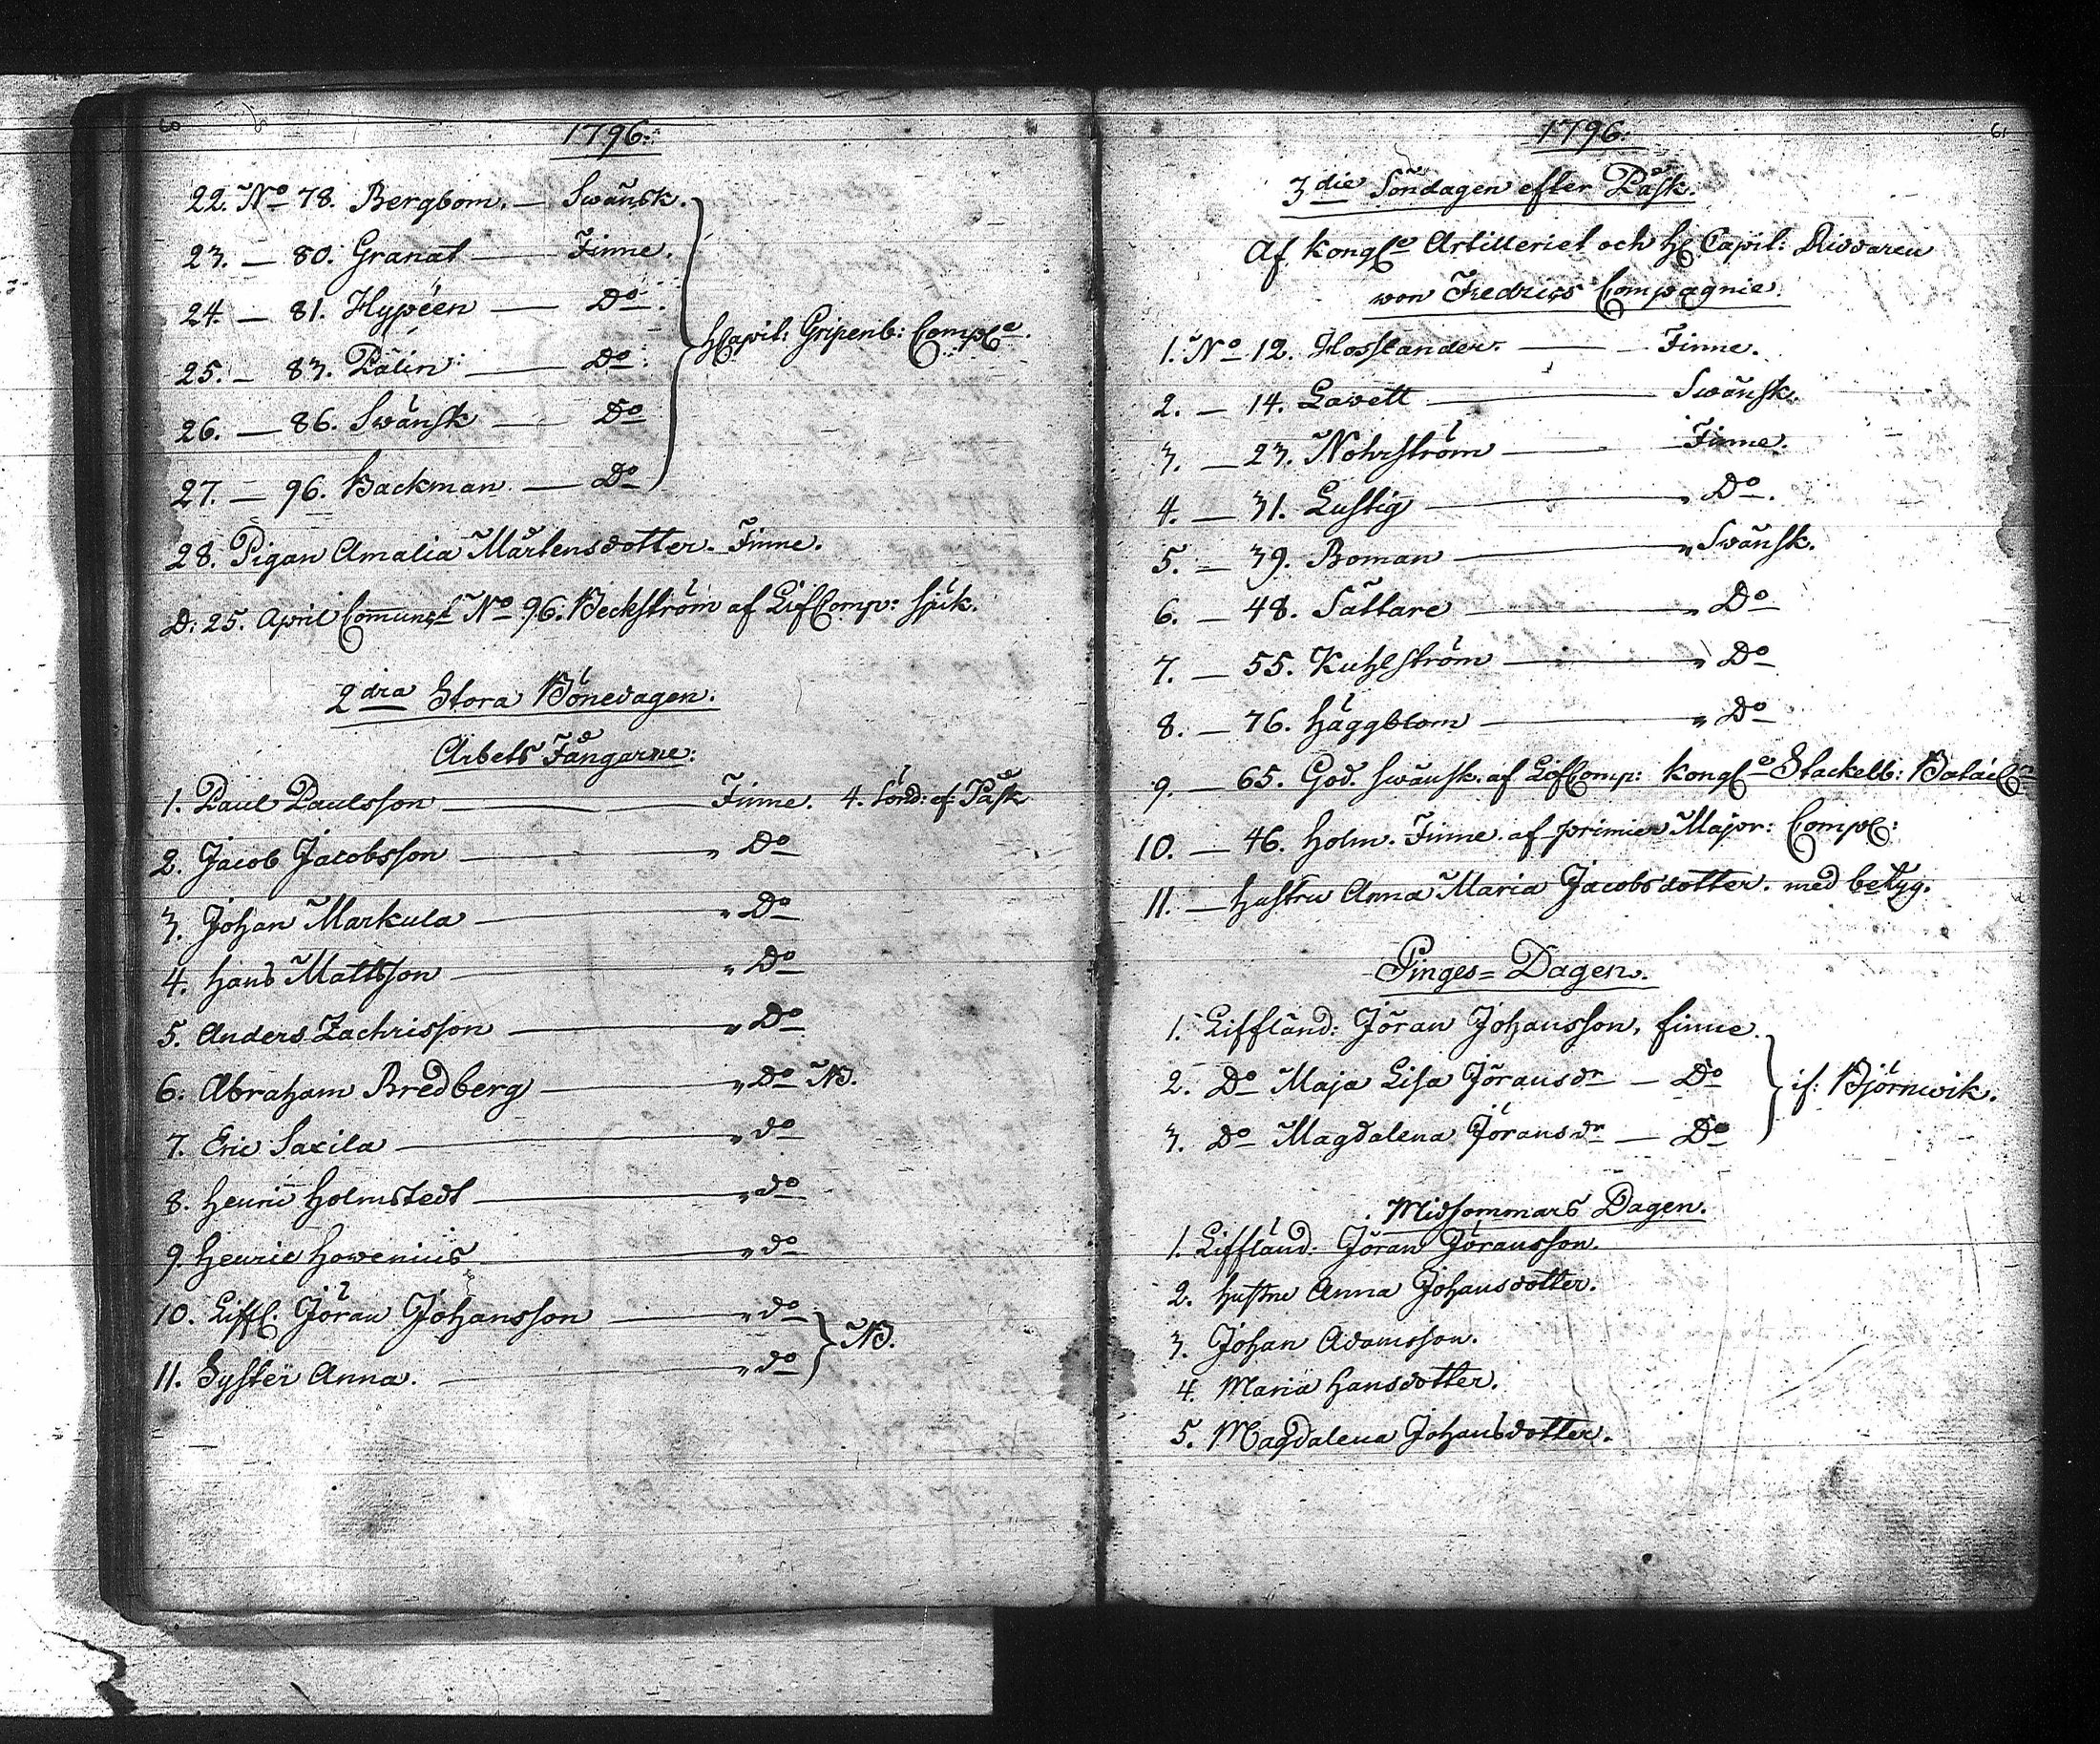 60
1796.
22. No 78. Bergbom. — Swänsk.
23. — 80. Granat — Finne.
24. — 81. Hypéen — Do.
25. — 83. Palin — Do.
HCapit: Gripenb: Comp
26. — 86. Swänsk — Do
27. — 96. Backman — Do
28. Pigan Amalia Mårtensdotter. Finne.
D. 25. April No 96. Beckström af LifComp: sjuk.
2dra Stora Bönedagen.
Arbets Fångarne:
1. Paul Paulsson — Finne. 4. Sönd: ef: Påsk
2. Jacob Jacobsson — " Do
3. Johan Markula — " Do
4. Hans Mattsson — " Do
5. Anders Zachrisson — " Do
6. Abraham Bredberg — " Do NB.
7. Eric Saxila — " do
8. Henric Holmstedt — " do
9. Henric Howenius — " do
10. Liffl. Jöran Johansson — " do
NB.
11. Syster Anna. — " do
61
1796.
3die Söndagen efter Påsk.
Af Kongl Artilleriet och H Capit: Riddaren
von Fredrics Compagnie.
1. No 12. Hosslander. — Finne.
2. — 14. Lavett — Swänsk.
3. — 23. Nohrström — Finne.
4. — 31. Lustig — " Do.
5. — 39. Boman — " Swänsk.
6. — 48. Sättare — " Do
7. — 55. Kuhlström — " Do
8. — 76. Häggblom — " Do
9. — 65. God. Swänsk. af LifComp: Kongl Stackelb:
10. — 46. Holm. Finne. af primier Major: Comp:
11. — Hustru Anna Maria Jacobsdotter. med betyg.
Pinges=Dagen.
1. Liffländ: Jöran Johansson, finne.
2. Do Maja Lisa Jöransdr — Do
if: Björnwik.
3. Do Magdalena Jöransdr — Do
Midsommars Dagen.
1. Liffländ: Jöran Jöransson.
2. Hustru Anna Johansdotter.
3. Johan Adamsson.
4. Maria Hansdotter.
5. Magdalena Johansdotter.